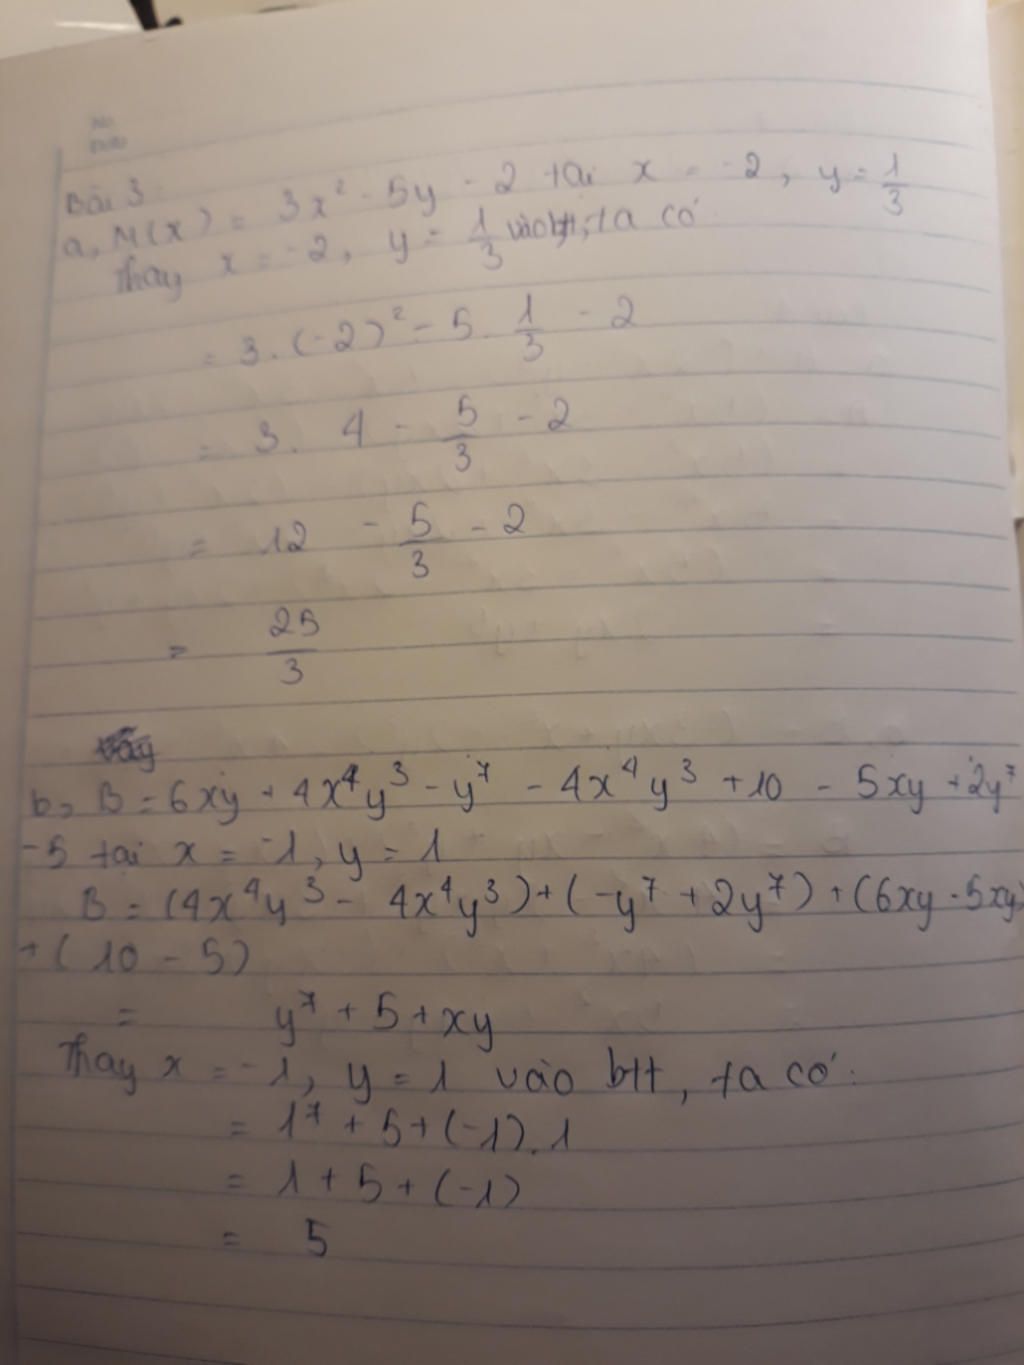 No.
Date
Bài 3:
a, M(x) = 3x² - 5y - 2 tại x = -2, y = 1/3
Thay x = -2, y = 1/3 vào btt, ta có
= 3 . (-2)² - 5 . 1/3 - 2
= 3 . 4 - 5/3 - 2
= 12 - 5/3 - 2
= 25/3
Vậy
b, B = 6xy + 4x⁴y³ - y⁷ - 4x⁴y³ + 10 - 5xy + 2y⁷
-5 tại x = -1, y = 1
B = (4x⁴y³ - 4x⁴y³) + (-y⁷ + 2y⁷) + (6xy - 5xy)
+ (10 - 5)
= y⁷ + 5 + xy
Thay x = -1, y = 1 vào btt, ta có:
= 1⁷ + 5 + (-1) . 1
= 1 + 5 + (-1)
= 5